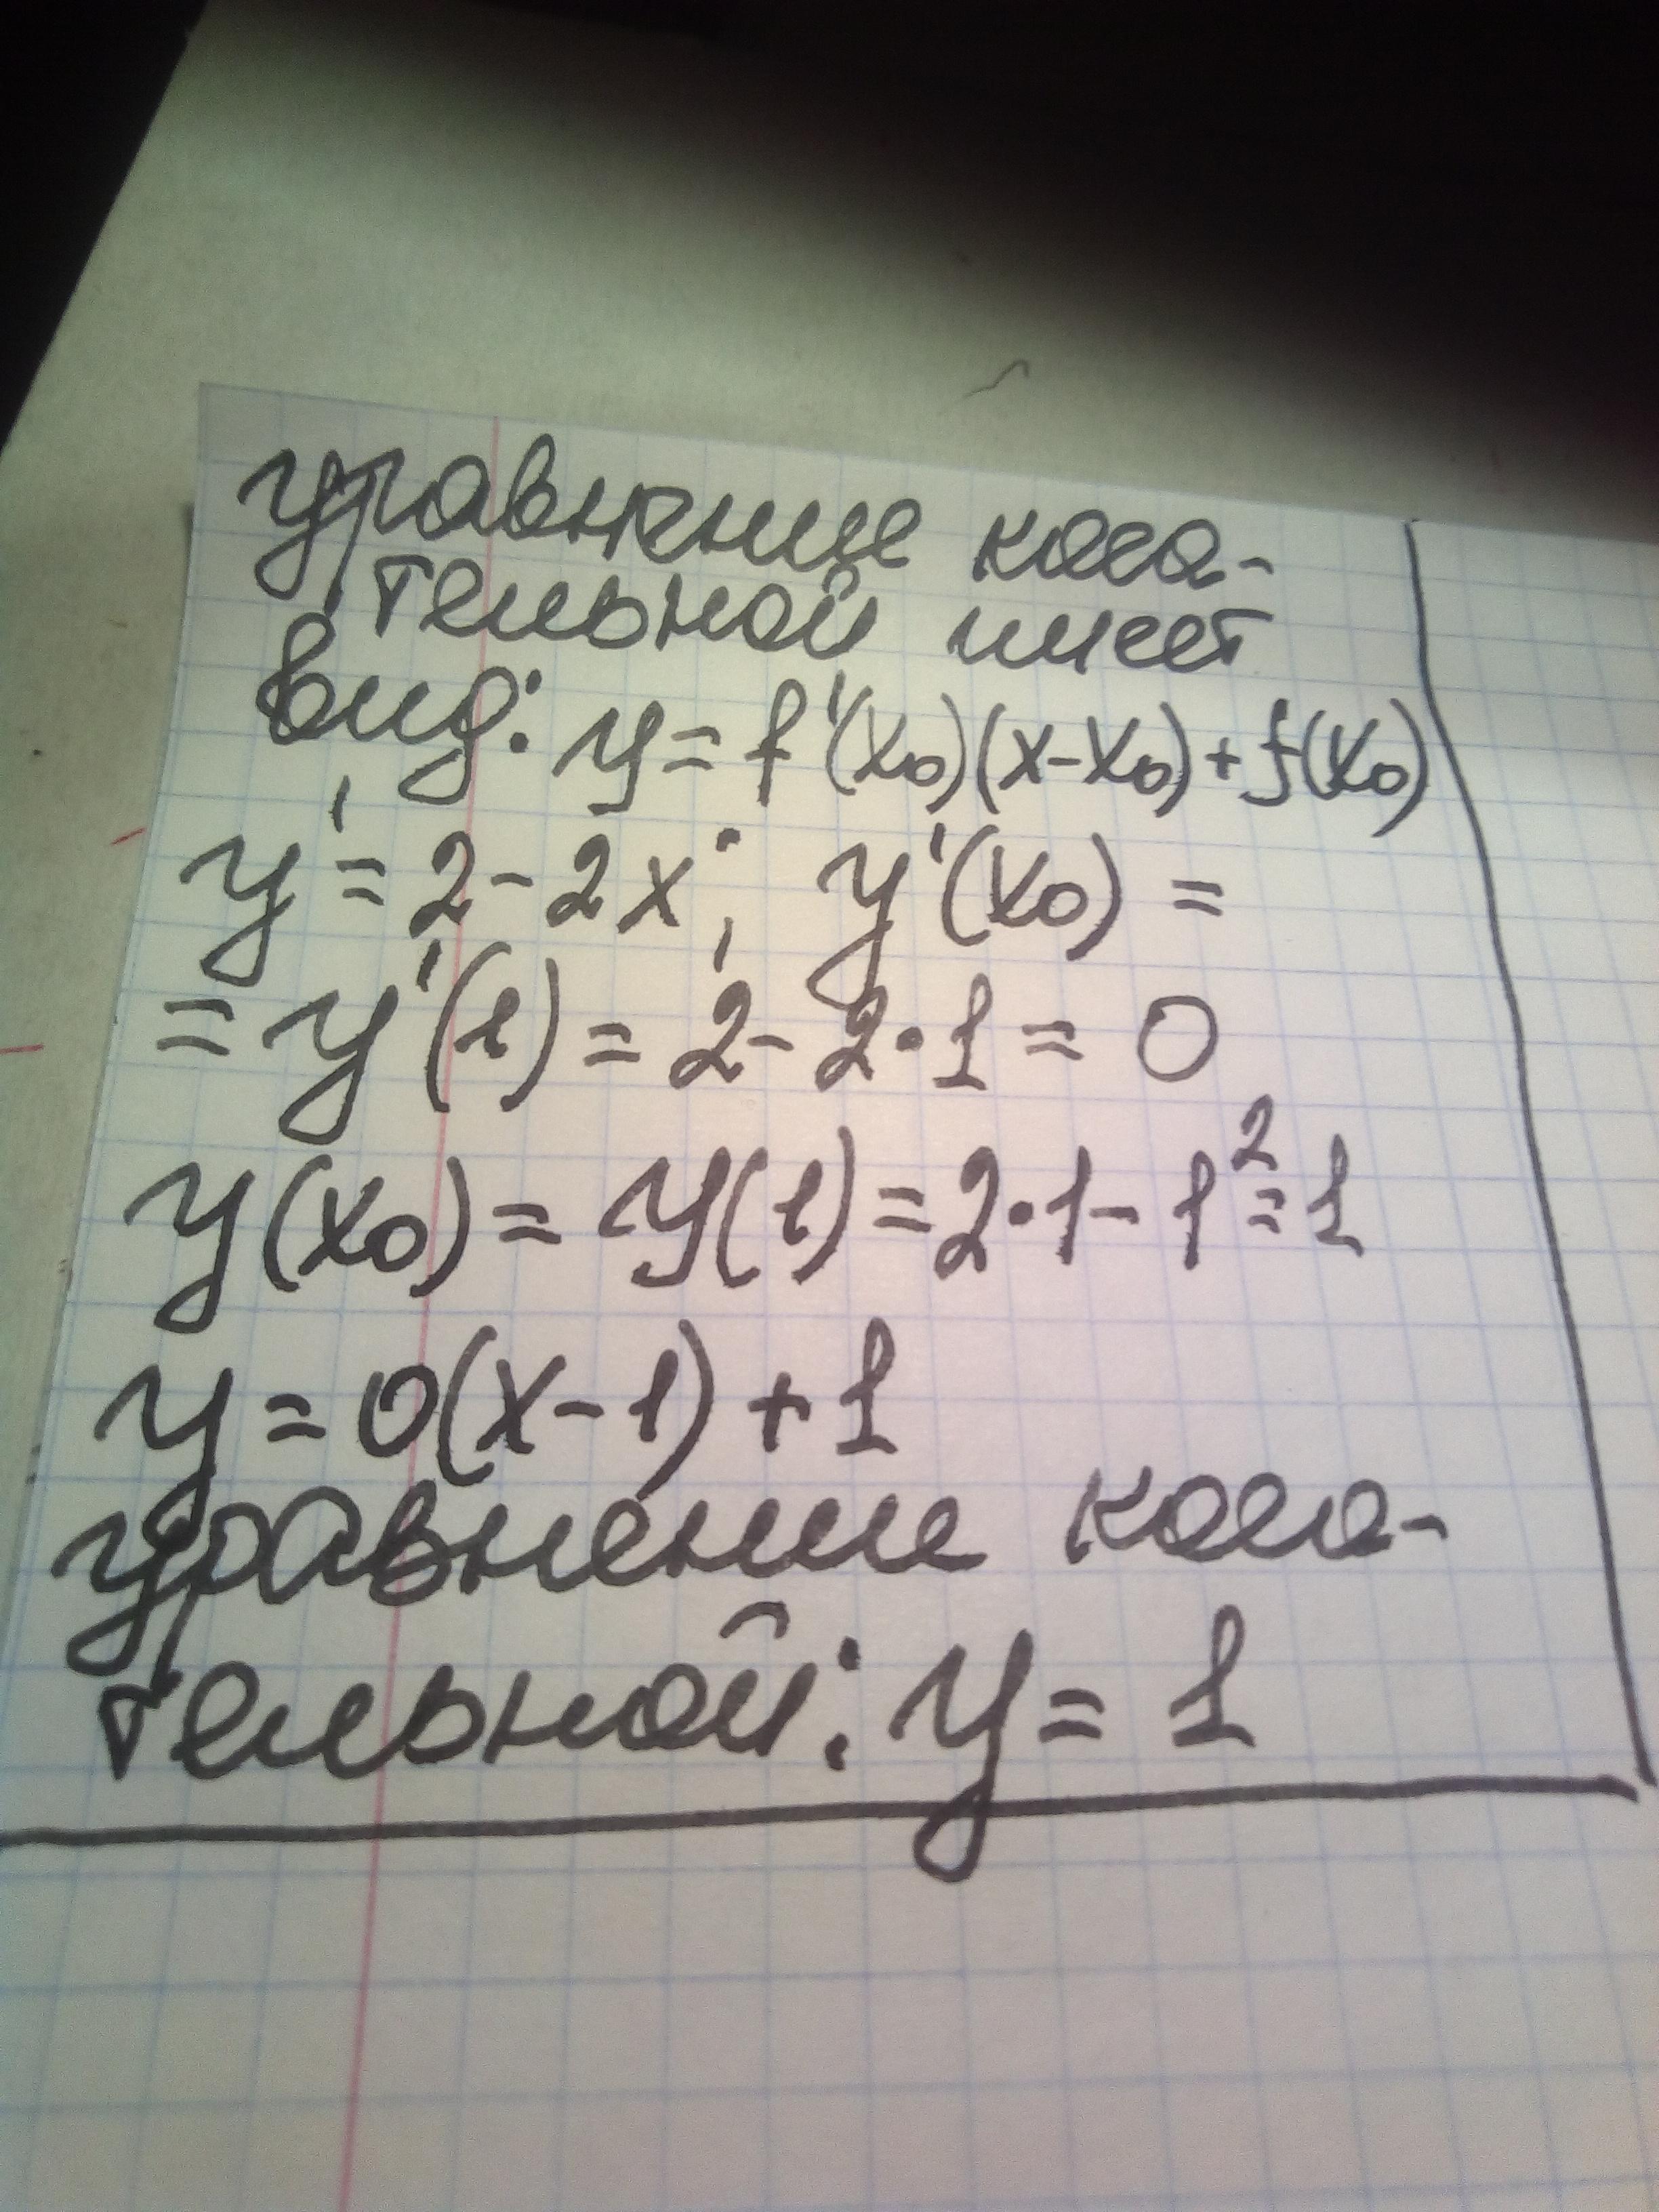 уравнение каса-
тельной имеет
вид: y = f'(x₀)(x-x₀)+f(x₀)
y' = 2-2x; y'(x₀) =
= y'(1) = 2-2•1 = 0
y(x₀) = y(1) = 2•1-1² = 1
y = 0(x-1)+1
уравнение каса-
тельной: y = 1